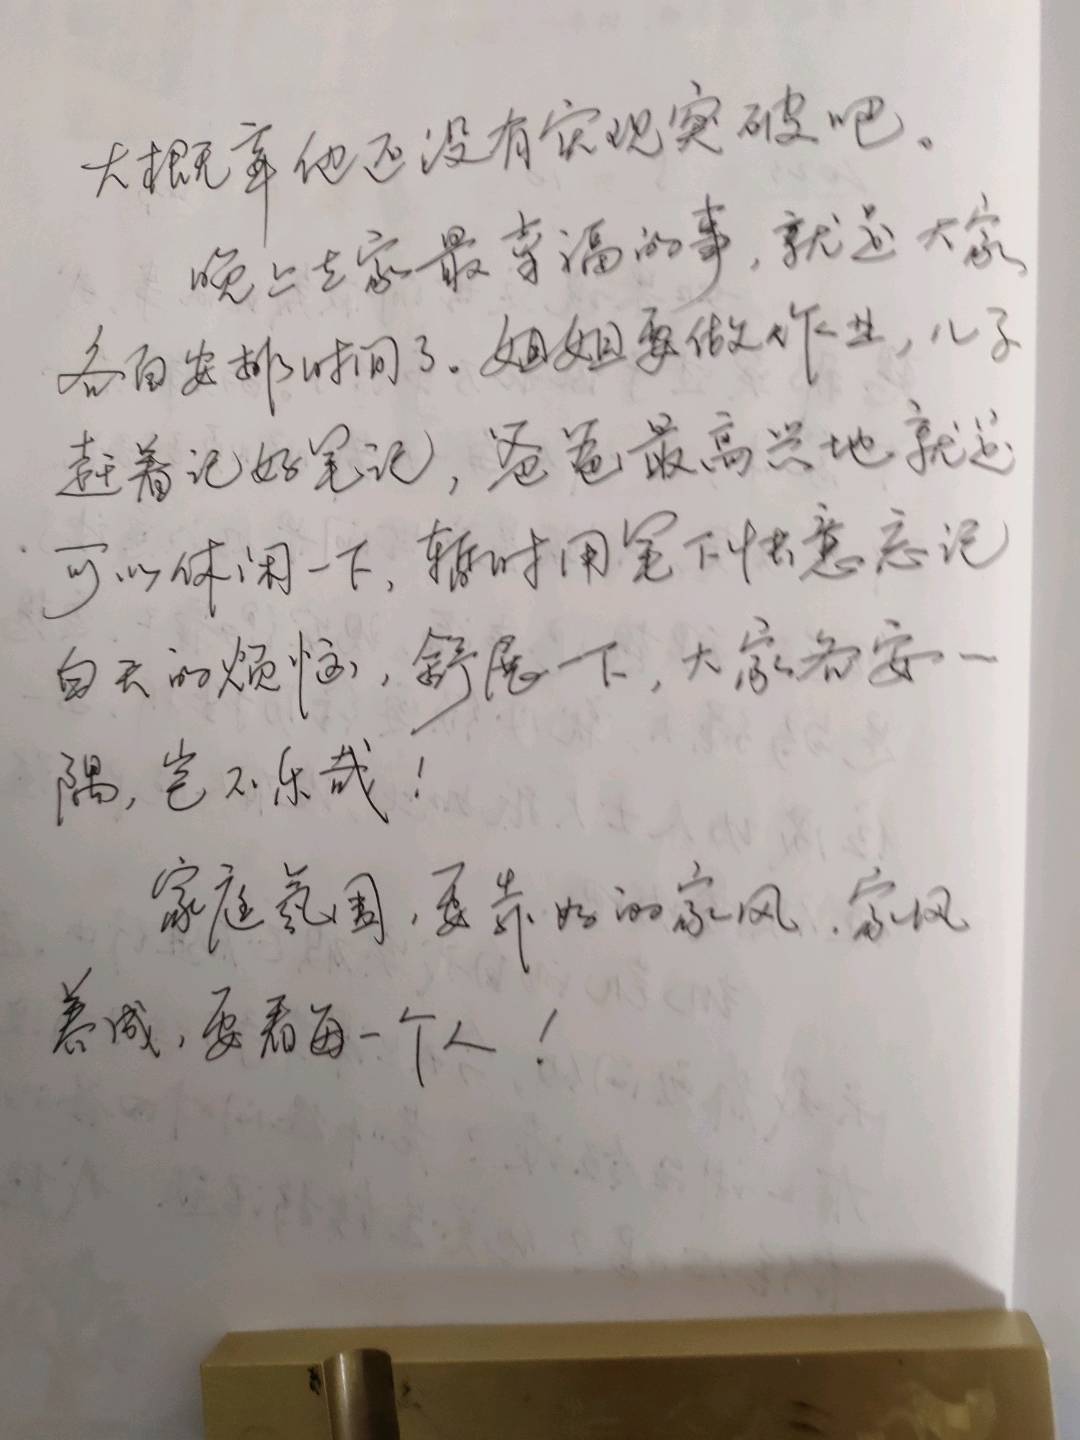 大概率他还没有实现突破吧。
晚上在家最幸福的事，就是大家
各自安排时间了。姐姐要做作业，儿子
赶着记好笔记，爸爸最高兴地就是
可以休闲一下，暂时用笔下快意忘记
白天的烦恼，舒展一下，大家各安一
隅，岂不乐哉！
家庭氛围，要靠好的家风，家风
养成，要看每一个人！